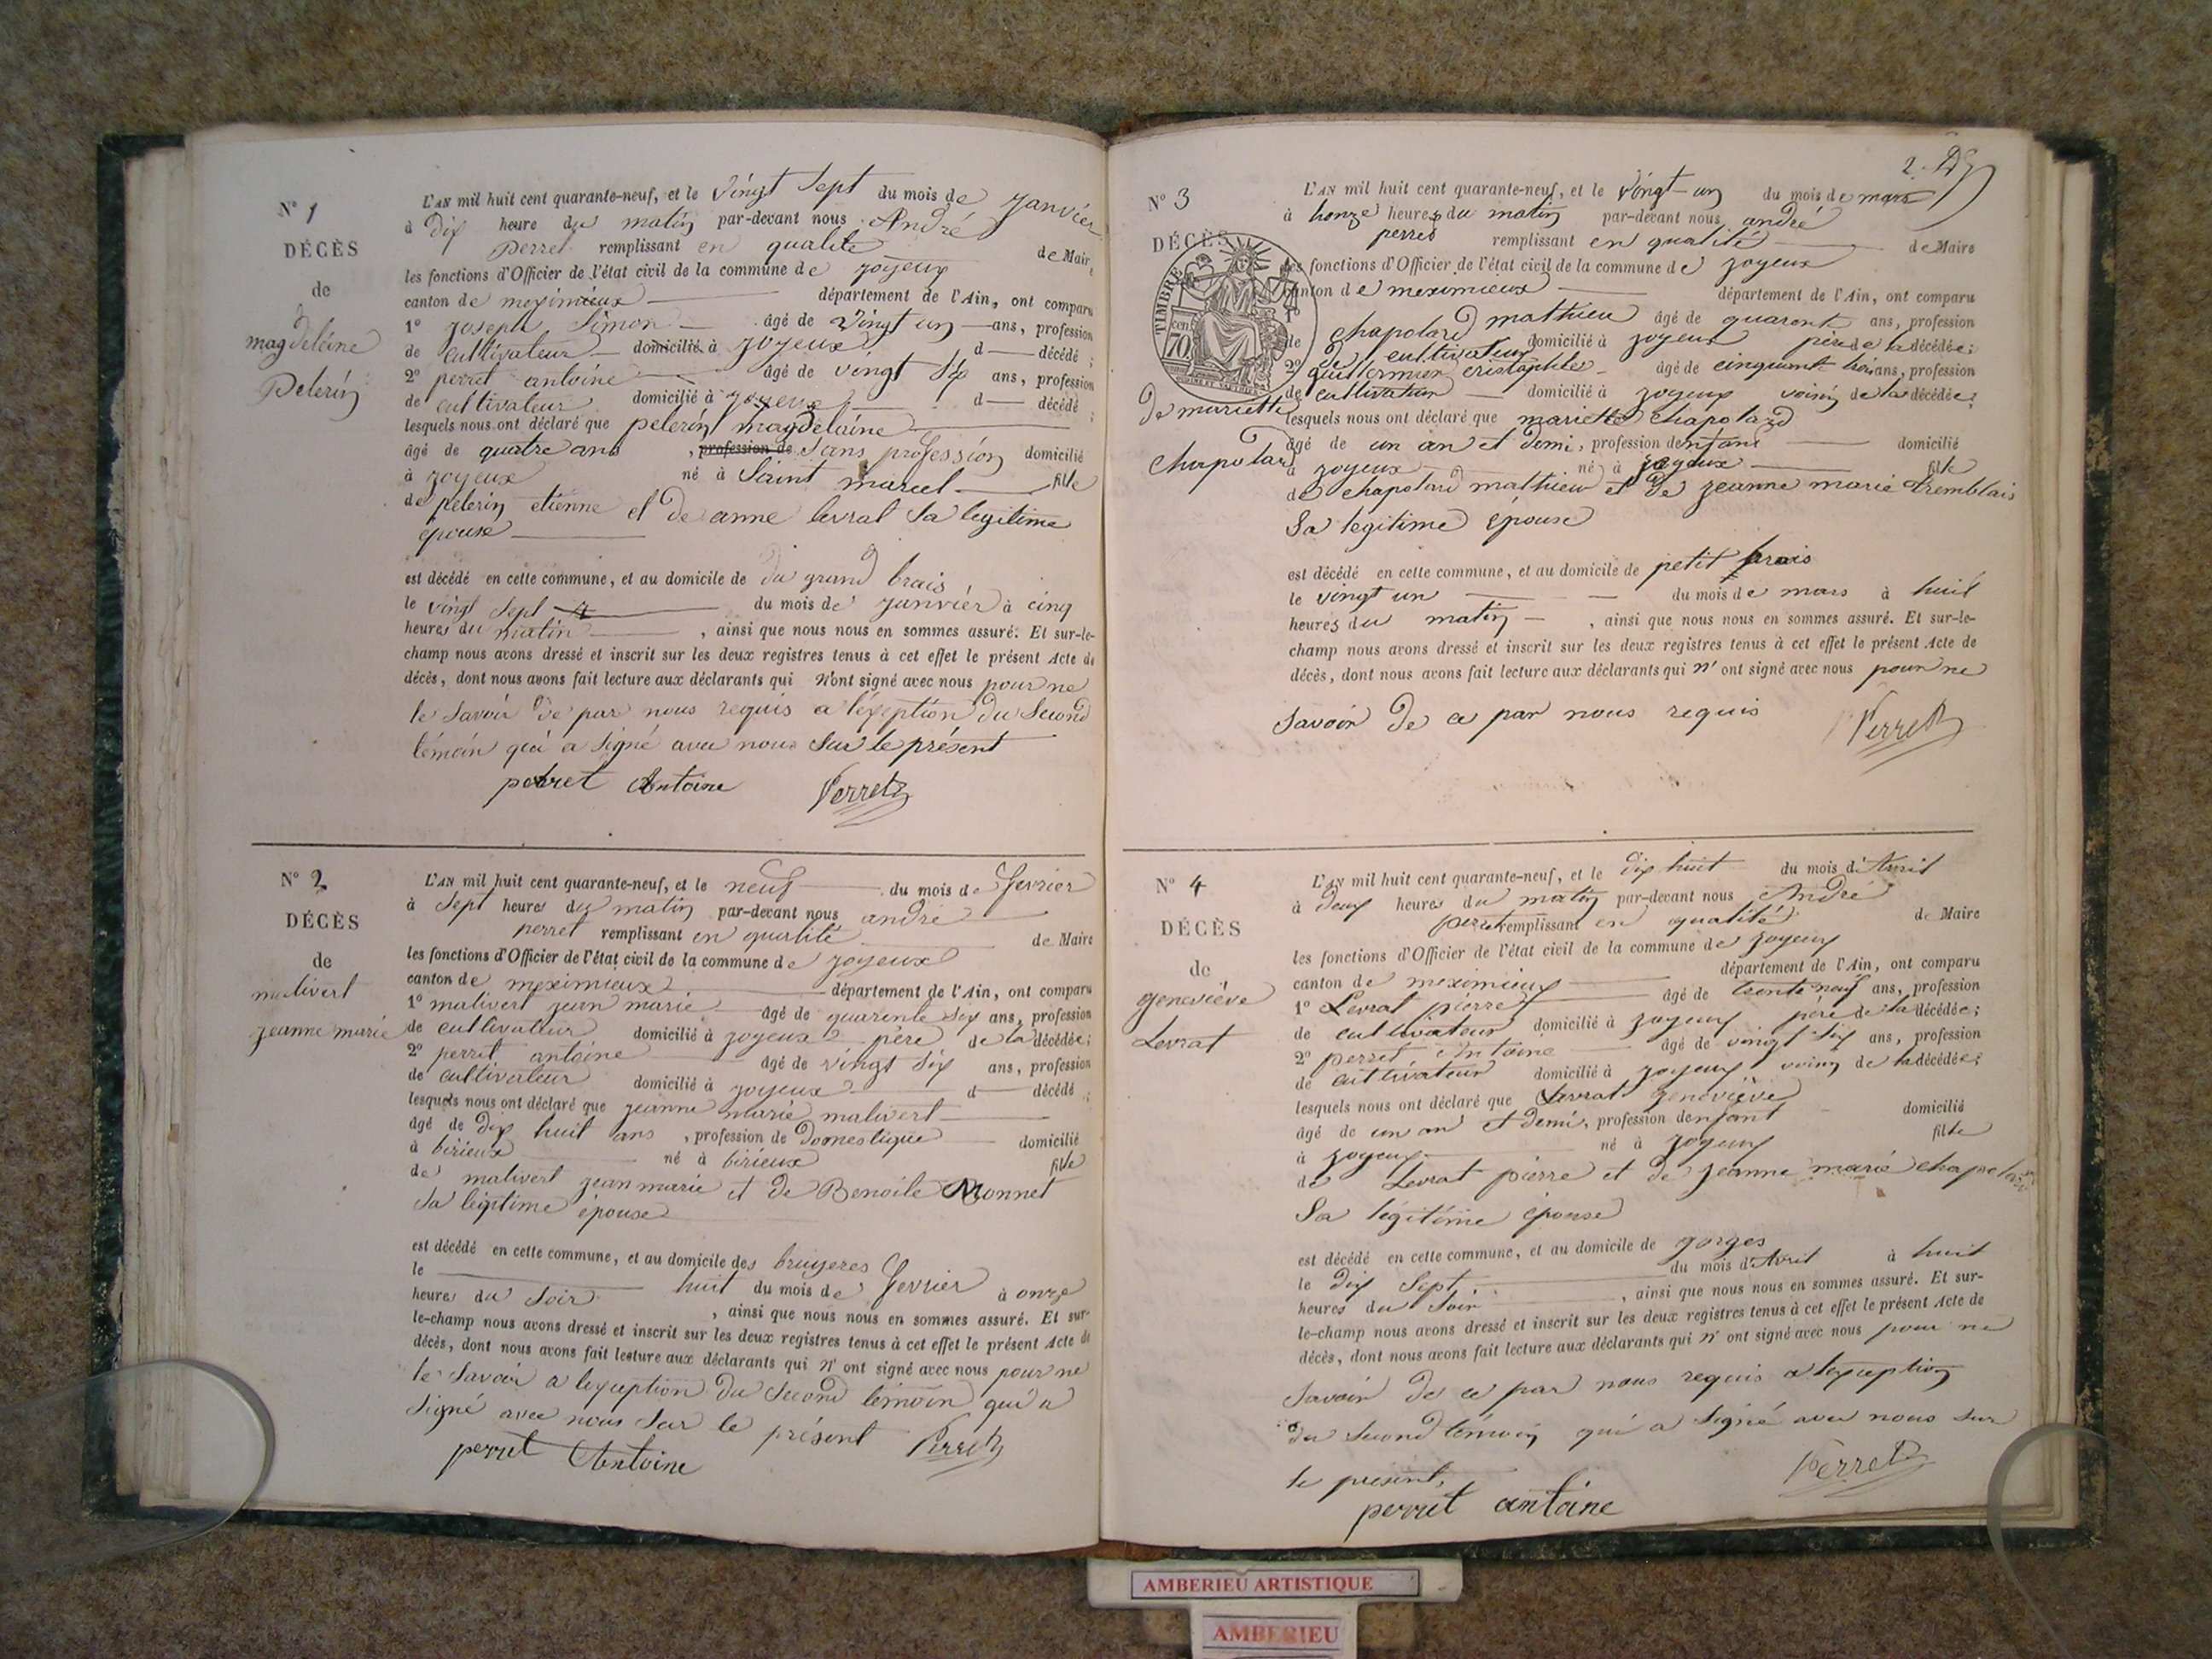 N° 1
DÉCÈS
de
magdeleine
Pelerin
L'AN mil huit cent quarante-neuf, et le vingt sept du mois de janvier
à dix heure du matin par-devant nous André
perret remplissant en qualité de Maire
les fonctions d'Officier de l'état civil de la commune de joyeux
canton de meximieux département de l'Ain, ont comparu
1° joseph Simon âgé de vingt un ans, profession
de cultivateur domicilié à joyeux d décédé ;
2° perret antoine âgé de vingt six ans, profession
de cultivateur domicilié à joyeux d décédé ;
lesquels nous ont déclaré que pelerin magdelaine
âgé de quatre ans , profession de sans profession domicilié
à joyeux né à Saint marcel fille
de pelerin etienne et de anne levrat sa legitime
epouse
est décédé en cette commune, et au domicile de du grand brais
le vingt sept du mois de janvier à cinq
heures du matin , ainsi que nous nous en sommes assuré. Et sur-le-
champ nous avons dressé et inscrit sur les deux registres tenus à cet effet le présent Acte de
décès, dont nous avons fait lecture aux déclarants qui n'ont signé avec nous pour ne
le savoir de par nous requis a l'exeption du second
témoin qui a signé avec nous sur le présent
perret Antoine Perret
N° 2
DÉCÈS
de
malivert
jeanne marie
L'AN mil huit cent quarante-neuf, et le neuf du mois de fevrier
à sept heures du matin par-devant nous andré
perret remplissant en qualité de Maire
les fonctions d'Officier de l'état civil de la commune de joyeux
canton de meximieux département de l'Ain, ont comparu
1° malivert jean marie âgé de quarente six ans, profession
de cultivateur domicilié à joyeux père de la décédée;
2° perret antoine âgé de vingt six ans, profession
de cultivateur domicilié à joyeux d décédé ;
lesquels nous ont déclaré que jeanne marie malivert
âgé de dix huit ans , profession de domestique domicilié
à birieux né à birieux fille
de malivert jean marie et de Benoite Monnet
sa légitime épouse
est décédé en cette commune, et au domicile des bruyeres
le huit du mois de fevrier à onze
heures du soir , ainsi que nous nous en sommes assuré. Et sur-
le-champ nous avons dressé et inscrit sur les deux registres tenus à cet effet le présent Acte de
décès, dont nous avons fait lecture aux déclarants qui n'ont signé avec nous pour ne
le savoir a lexception du second témoin qui a
signé avec nous sur le présent Perret
perret Antoine
2.
N° 3
DÉCÈS
TIMBRE
70
de mariette
chapolard
L'AN mil huit cent quarante-neuf, et le vingt-un du mois de mars
à honze heures du matin par-devant nous andré
perret remplissant en qualité de Maire
les fonctions d'Officier de l'état civil de la commune de joyeux
canton de meximieux département de l'Ain, ont comparu
1° chapolard mathieu âgé de quarante ans, profession
de cultivateur domicilié à joyeux père de la décédée;
2° guillermin cristophle âgé de cinquant trois ans, profession
de cultivateur domicilié à joyeux voisin de la décédée;
lesquels nous ont déclaré que mariette chapolard
âgé de un an et demi, profession denfant domicilié
à joyeux né à joyeux fille
de chapolard mathieu et de jeanne marie tremblais
sa legitime épouse
est décédé en cette commune, et au domicile de petit brais
le vingt un du mois de mars à huit
heures du matin , ainsi que nous nous en sommes assuré. Et sur-le-
champ nous avons dressé et inscrit sur les deux registres tenus à cet effet le présent Acte de
décès, dont nous avons fait lecture aux déclarants qui n'ont signé avec nous pour ne
savoir de ce par nous requis Perret
N° 4
DÉCÈS
de
geneviève
Levrat
L'AN mil huit cent quarante-neuf, et le dix huit du mois d'Avril
à deux heures du matin par-devant nous André
perret remplissant en qualité de Maire
les fonctions d'Officier de l'état civil de la commune de joyeux
canton de meximieux département de l'Ain, ont comparu
1° Levrat pierre âgé de trente neuf ans, profession
de cultivateur domicilié à joyeux père de la décédée;
2° perret Antoine âgé de vingt six ans, profession
de cultivateur domicilié à joyeux voisin de la décédée;
lesquels nous ont déclaré que Levrat geneviève
âgé de un an et demi, profession denfant domicilié
à joyeux né à joyeux fille
de Levrat pierre et de jeanne marie chapolard
Sa légitime épouse
est décédé en cette commune, et au domicile de gorges
le dix sept du mois d'Avril à huit
heures du soir , ainsi que nous nous en sommes assuré. Et sur-
le-champ nous avons dressé et inscrit sur les deux registres tenus à cet effet le présent Acte de
décès, dont nous avons fait lecture aux déclarants qui n'ont signé avec nous pour ne
savoir de ce par nous requis a lexception
du second témoin qui a signé avec nous sur
le présent, Perret
perret antoine
AMBERIEU ARTISTIQUE
AMBERIEU